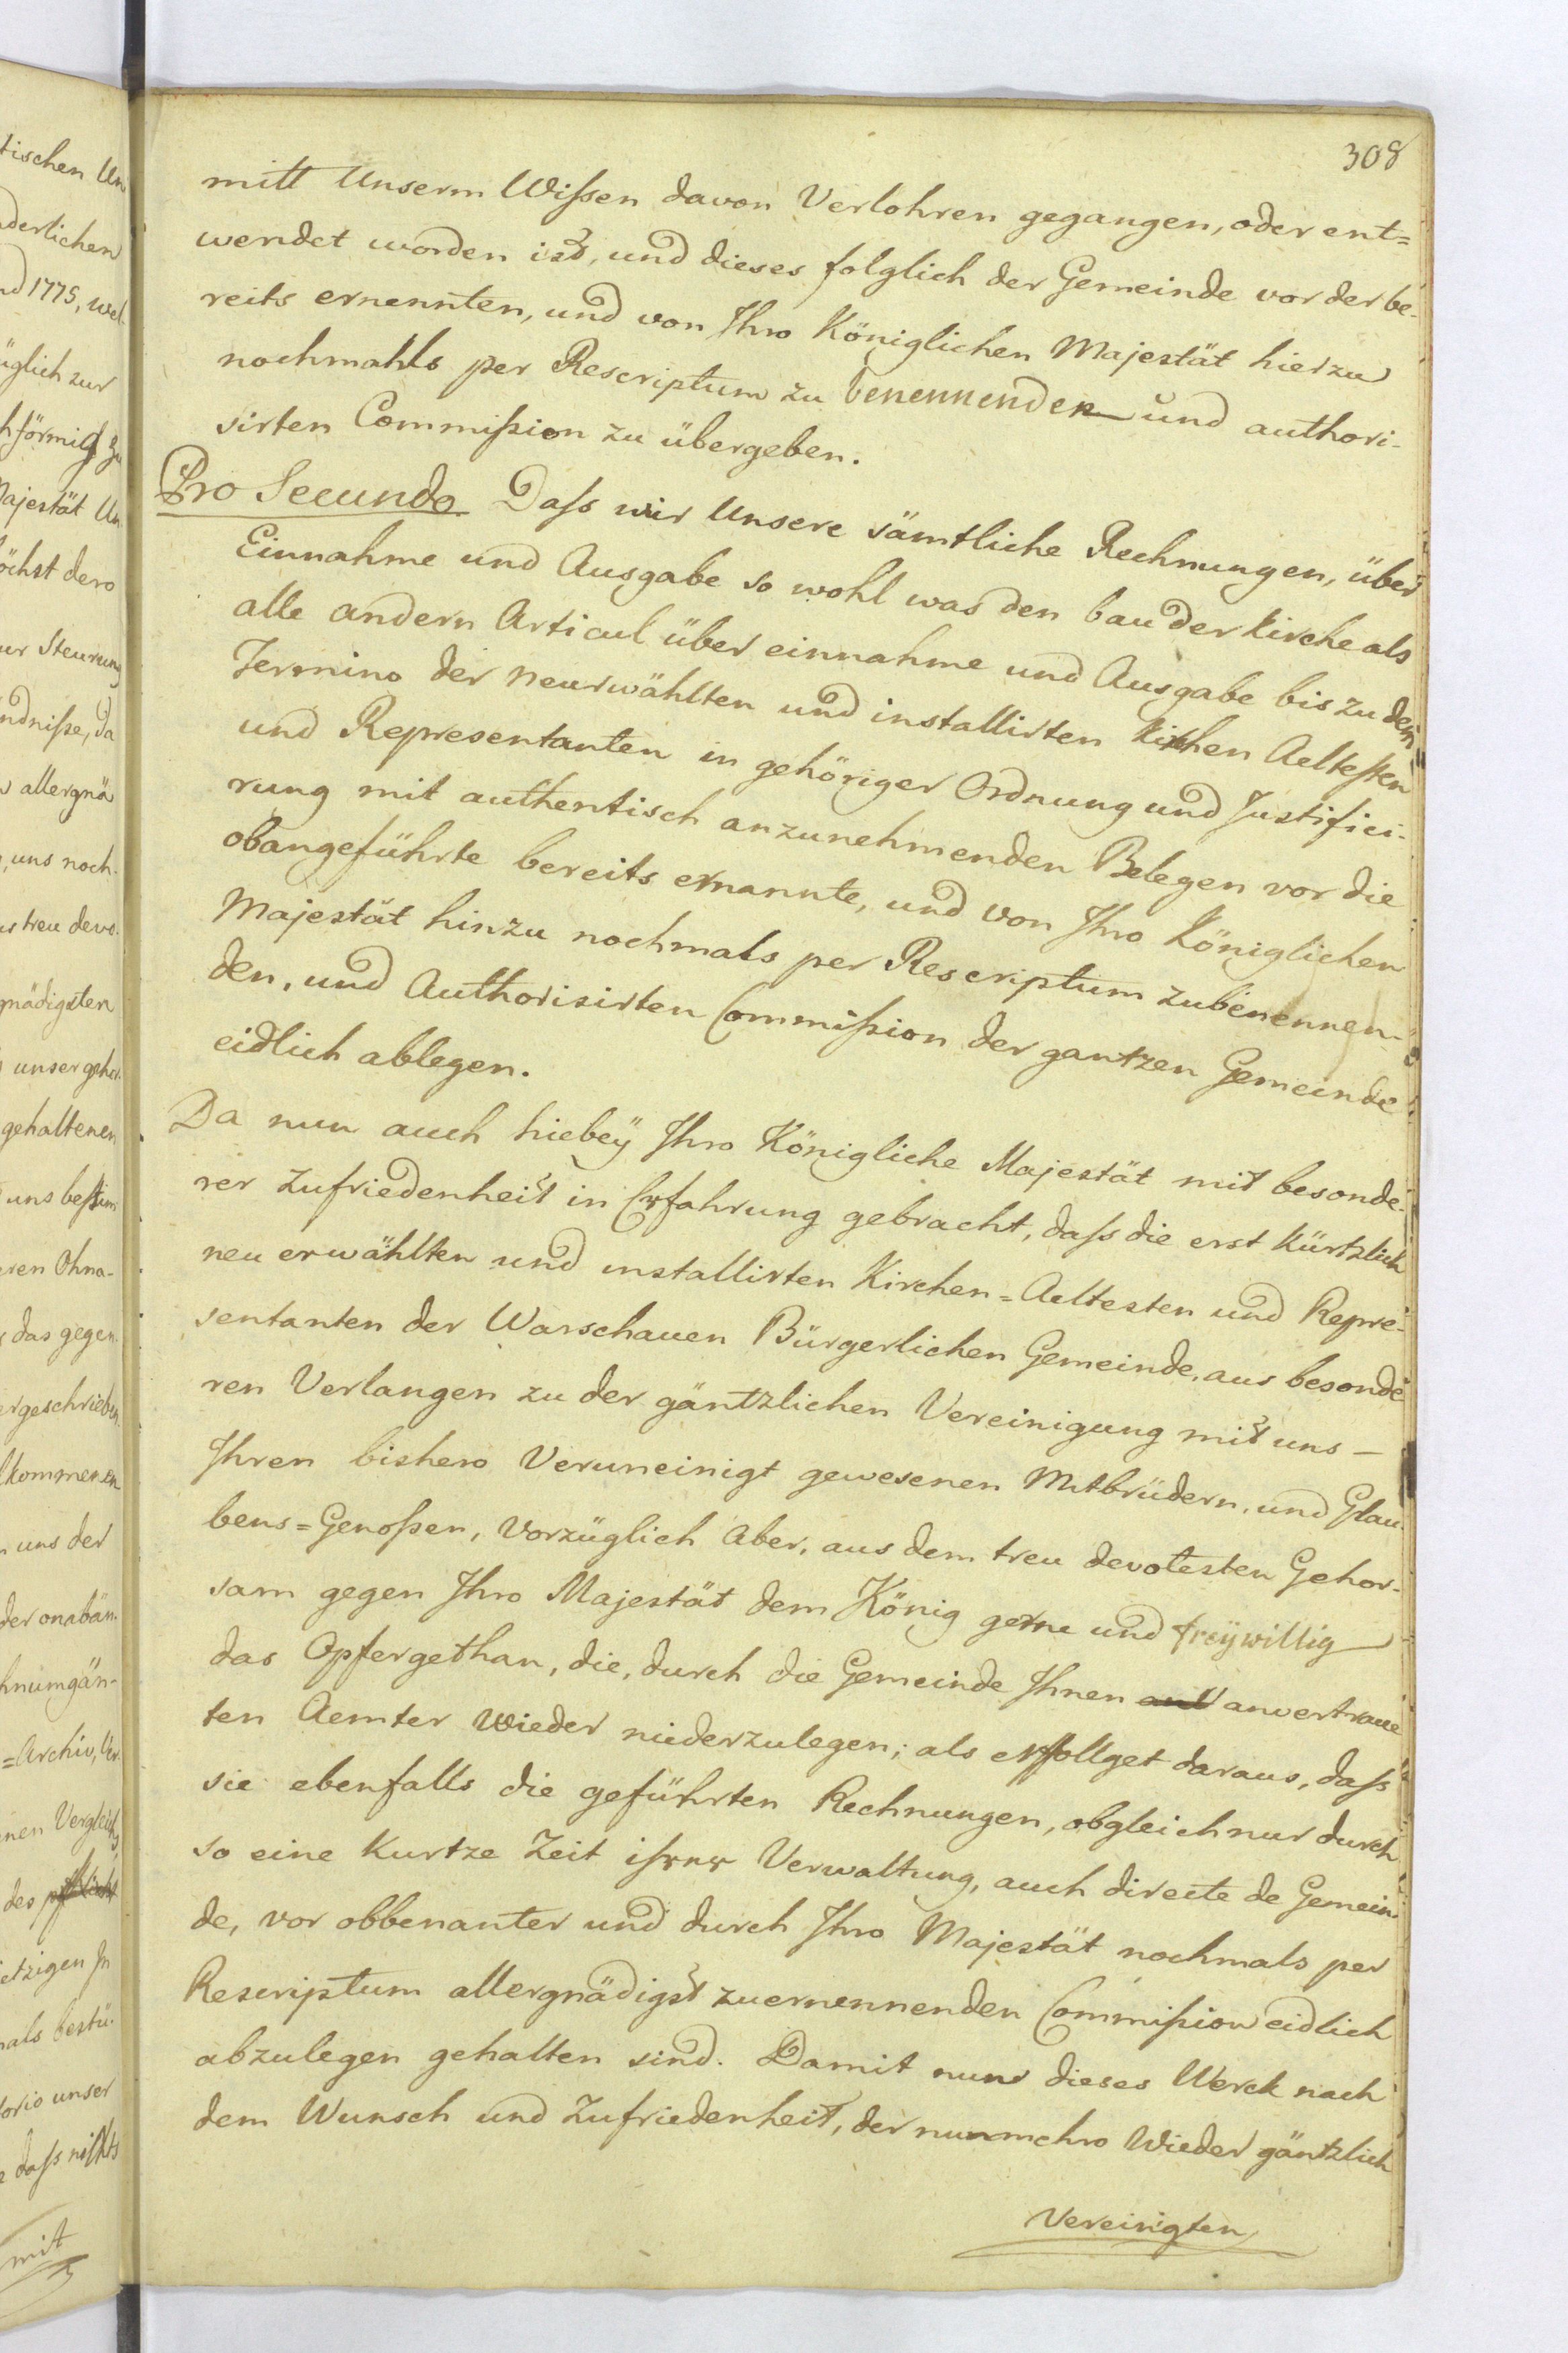 308
mitt Unserm Wißen davon Verlohren gegangen, oder ent=
wendet worden ist, und dieses folglich der Gemeinde vor der be-
reits ernennten, und von Ihro Königlichen Majestät hierzu
nochmahls per Rescriptum zu benennenden und authori-
sirten Commißion zu übergeben.
Pro Secundo Daß wir Unsere sämtliche Rechnungen, über
Einnahme und Ausgabe so wohl was den bau der kirche als
alle andern Articul über einnahme und Ausgabe bis zu dem
Termino der neuerwählten und installirten kirchen Aeltesten
und Representanten in gehöriger Ordnung und Justifici-
rung mit authentisch anzunehmenden Belegen vor die
obangeführte bereits ernannte, und von Ihro Königlichen
Majestät hinzu nochmals per Rescriptum zubenennen-
den, und Authorisirten Commißion der gantzen Gemeinde
eidlich ablegen.
Da nun auch hiebeÿ Ihro Königliche Majestät mit besonde-
rer Zufriedenheit in Erfahrung gebracht, daß die erst kürtzlich
neu erwählten und installirten Kirchen=Aeltesten und Repre-
sentanten der Warschauen Bürgerlichen Gemeinde, aus besonde
ren Verlangen zu der gäntzlichen Vereinigung mit uns –
Ihren bishero Veruneinigt gewesenen Mitbrüdern, und Glau-
bens=Genoßen, Vorzüglich Aber, aus dem treu devotesten Gehor-
sam gegen Ihro Majestät dem König gerne und freÿwillig
das Opfer gethan, die, durch die Gemeinde Ihnen anvertraue
ten Aemter Wieder niederzulegen; als erfollget daraus, daß
sie ebenfalls die geführten Rechnungen, obgleich nur durch
so eine Kurtze Zeit ihrer Verwaltung, auch directe de Gemein-
de, vor obbenanter und durch Ihro Majestät nochmals per
Rescriptum allergnädigst zuernennenden Commißion eidlich
abzulegen gehalten sind. Damit nun dieses Werck nach
dem Wunsch und Zufriedenheit, der nunmehro Wieder gäntzlich
Vereinigten